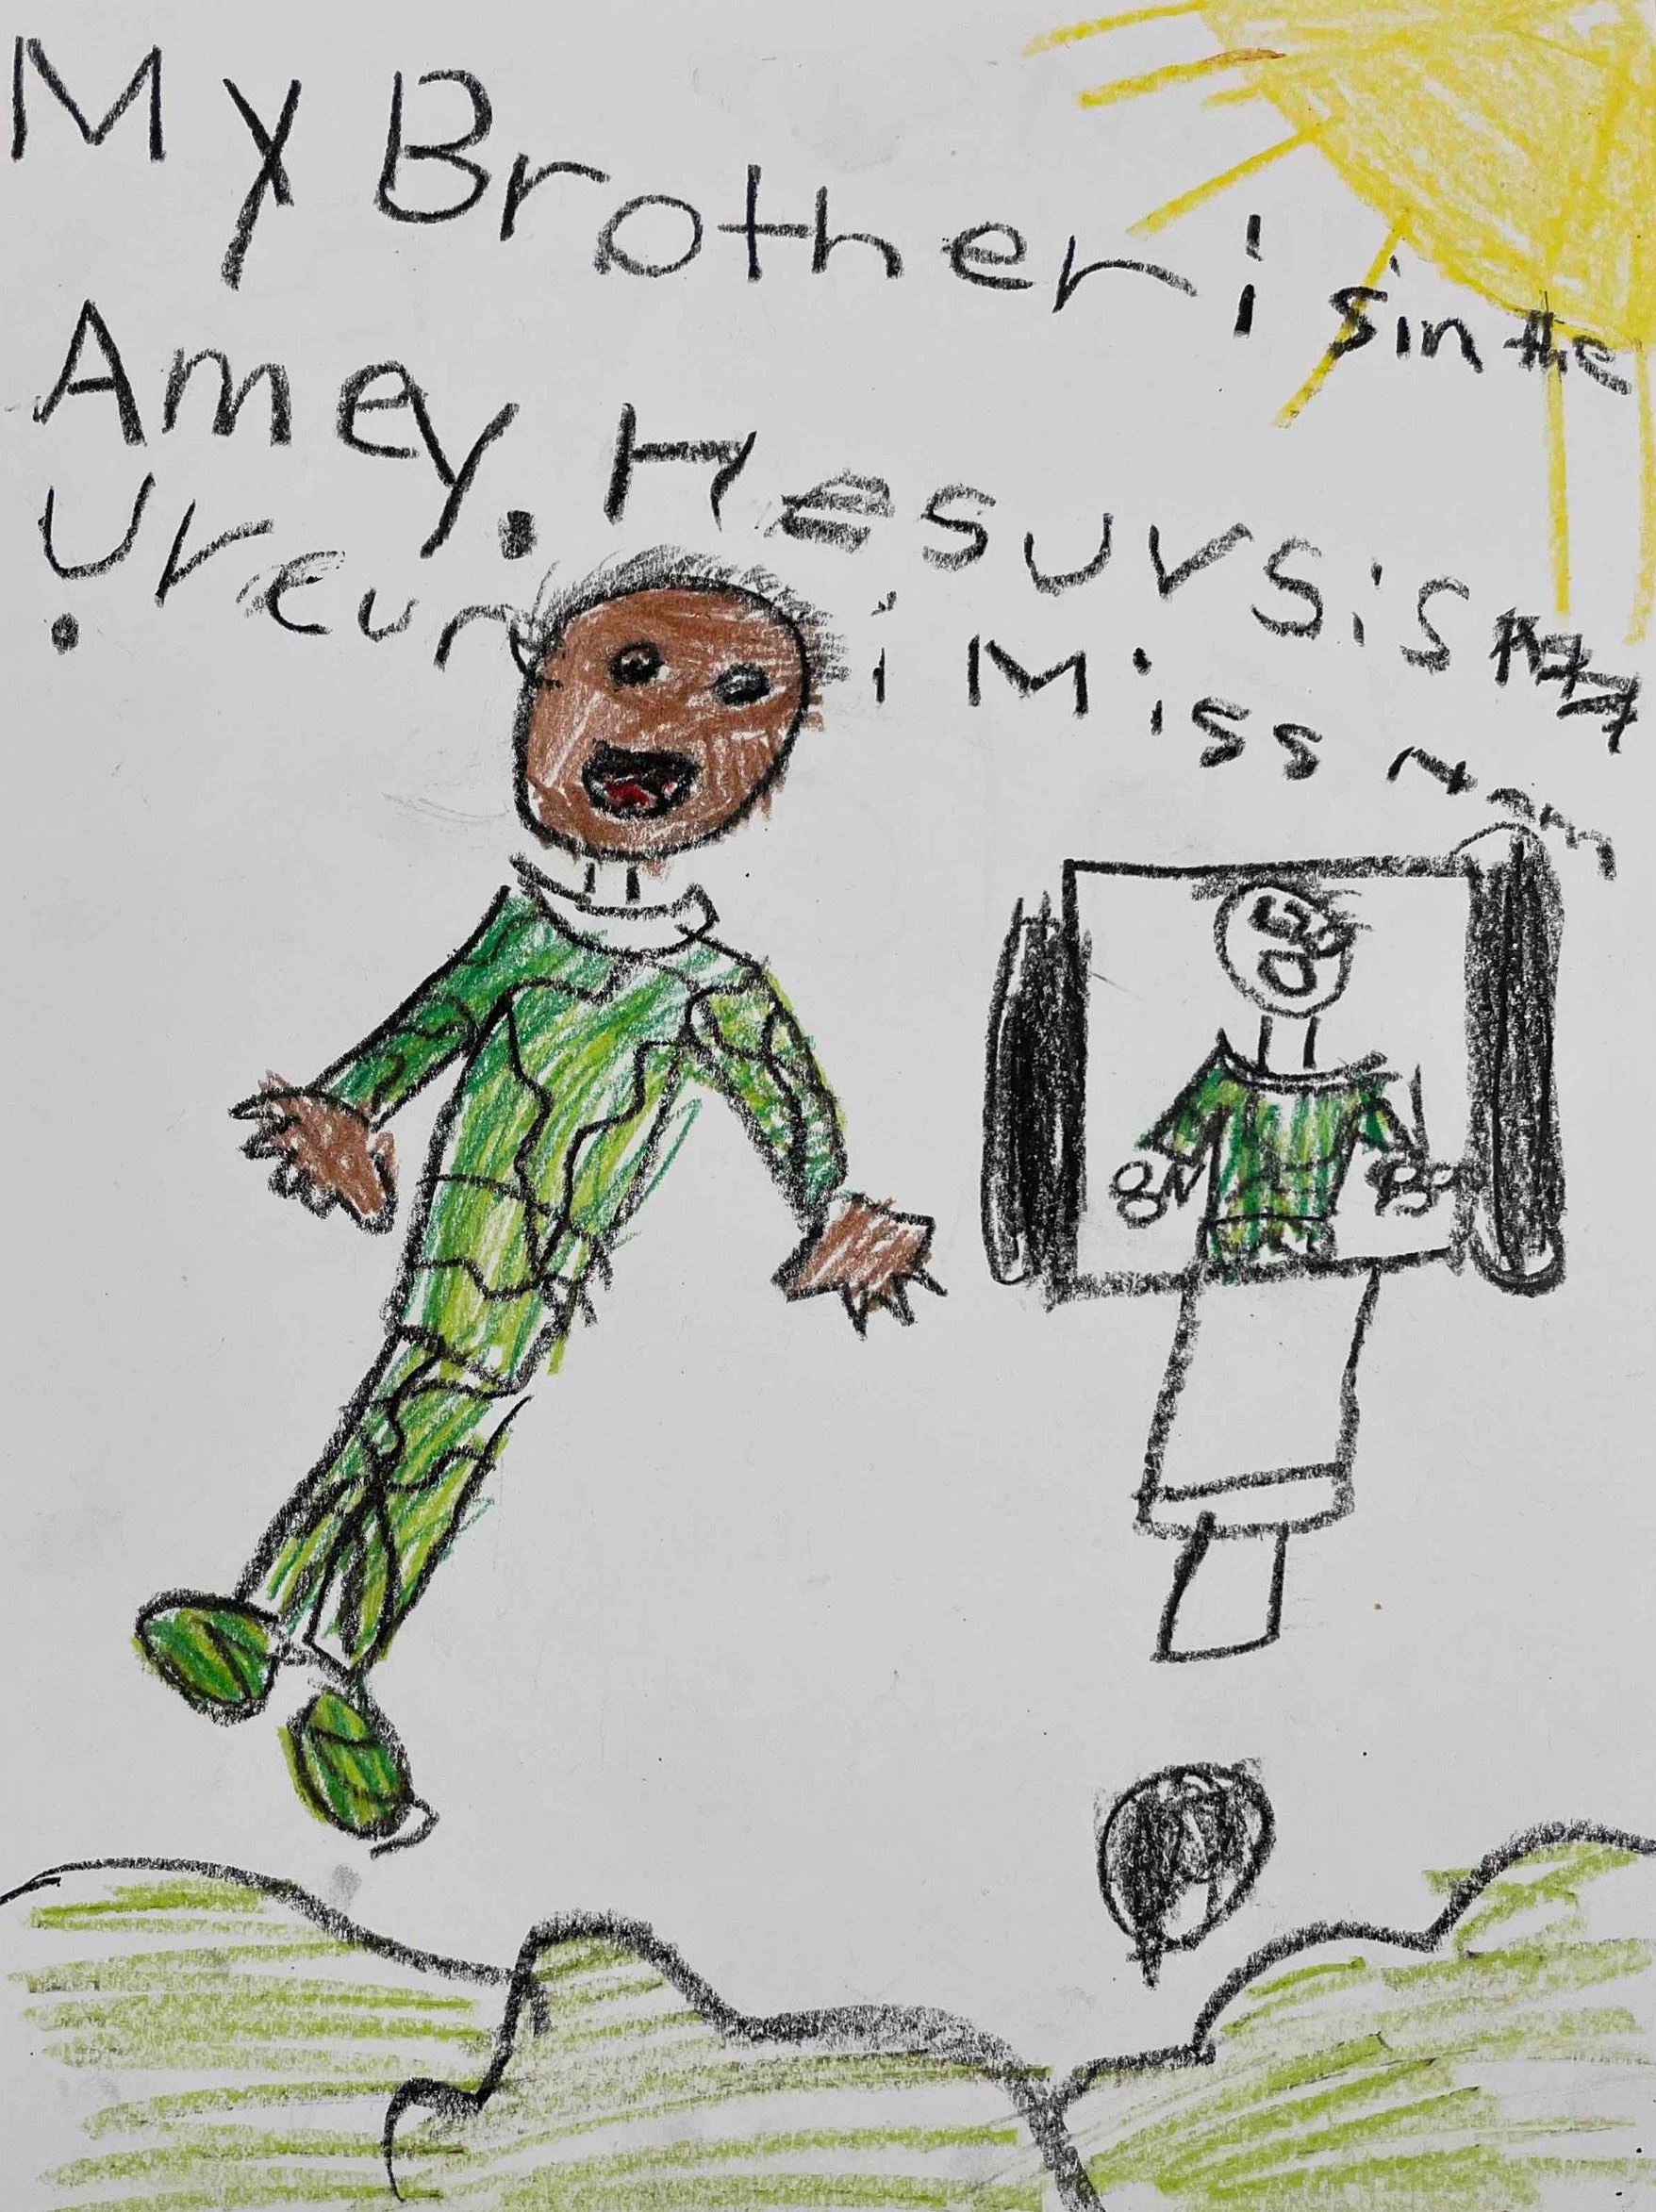 My Brother is in the
Amey. He suvsis
i Miss